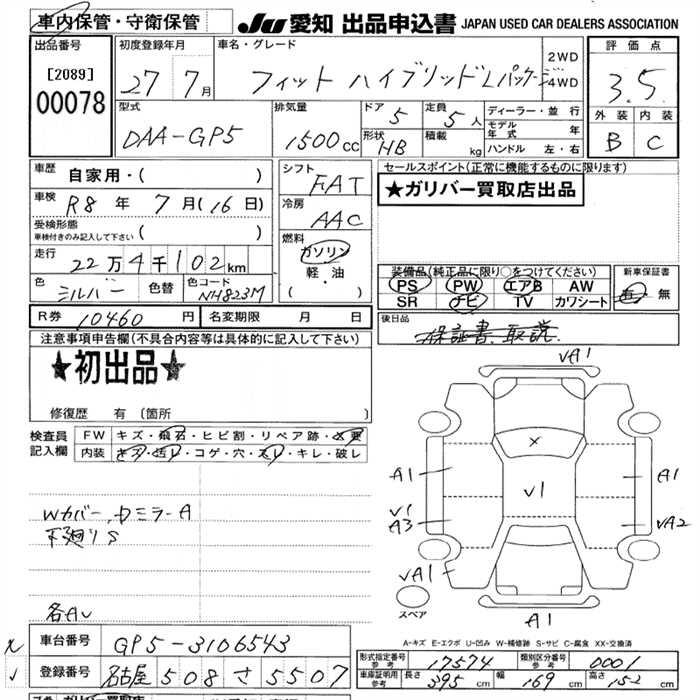 車内保管・守衛保管
JU 愛知 出品申込書 JAPAN USED CAR DEALERS ASSOCIATION
出品番号 初度登録年月 車名・グレード 評価点
[2089] 27 7月 フィット ハイブリッド Lパッケージ 2WD 4WD 3.5
00078 型式 排気量 ドア 5 定員 5人 ディーラー・並行 外装 内装
DAA-GP5 1500cc 形状 HB 積載 kg モデル年式 年 B C
ハンドル 左・右
車歴 自家用・( ) シフト FAT セールスポイント(正常に機能するものに限ります)
車検 R8年 7月(16日) 冷房 AAC ★ガリバー買取店出品
受検形態 車検付きのみ記入して下さい ( )
走行 22万4千102km 燃料 ガソリン 軽・油 ( )
装備品(純正品に限り○をつけてください) 新車保証書
色 シルバー 色替 色コード NH823M PS PW エアB AW 有・無
SR ナビ TV カワシート
R券 10460円 名変期限 月 日 後日品
注意事項申告欄(不具合内容等は具体的に記入して下さい) 保証書、取説
★初出品★ VA1
修復歴 有 (箇所 )
検査員記入欄 FW キズ・飛石・ヒビ割・リペア跡・X要
内装 キズ・汚レ・コゲ・穴・スレ・キレ・破レ
A1 V1 A1
V1
Wカバー、ウミラーA A3 VA2
下廻りS
VA1
各AV スペア A1
A-キズ E-エクボ U-凹み W-補修跡 S-サビ C-腐食 XX-交換済
車台番号 GP5-3106543
形式指定番号 参考 17574 類別区分番号 参考 0001
登録番号 名古屋 508 さ 5507
車庫証明用 参考 長さ 395cm 幅 169cm 高さ 152cm